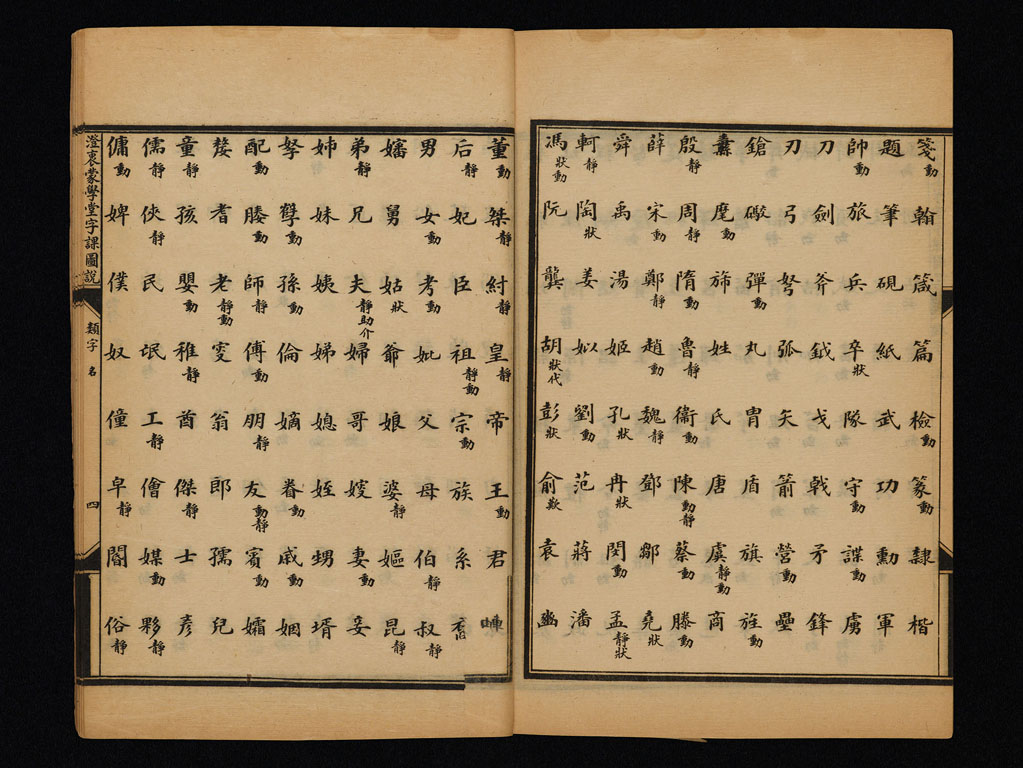 箋動 翰 箴 篇 檢動 篆動 隸 楷
題 筆 硯 紙 武 功 勳 軍
帥動 旅 兵 卒狀 隊 守動 諜動 虜
刀 劍 斧 鉞 戈 戟 矛 鋒
刃 弓 弩 弧 矢 箭 營動 壘
鎗 礮 彈動 丸 冑 盾 旗 旌動
纛 麾動 旆 姓 氏 唐 虞靜動 商
殷靜 周靜 隋動 魯靜 衞動 陳動靜 蔡動 滕動
薛 宋動 鄭靜 趙動 魏靜 鄧 鄒 堯狀
舜 禹 湯 姬 孔狀 冉狀 閔動 孟靜狀
軒靜 陶狀 姜 姒 劉動 范 蔣 潘
馮狀動 阮 龔 胡狀代 彭狀 俞歎 袁 幽
董動 桀靜 紂靜 皇靜 帝 王動 君
后靜 妃 臣 祖靜動 宗動 族 系
男 女動 考動 妣 父 母 伯靜 叔靜
嬸 舅 姑狀 爺 娘 婆靜 嫗 昆靜
弟靜 兄 夫靜助介 婦 哥 嫂 妻動 妾
姊 妹 姨 娣 媳 姪 甥 壻
孥 孽動 孫動 倫 嫡 眷動 戚動 姻
配動 媵動 師靜 傅動 朋靜 友動靜 賓動 孀
嫠 耆 老靜動 叟 翁 郎 孺 兒
童靜 孩 嬰動 稚靜 酋 傑靜 士 彥
儒靜 俠靜 民 氓 工靜 儈 媒動 夥靜
傭動 婢 僕 奴 僮 皁靜 閽 俗靜
澄衷蒙學堂字課圖說 類字 名 四